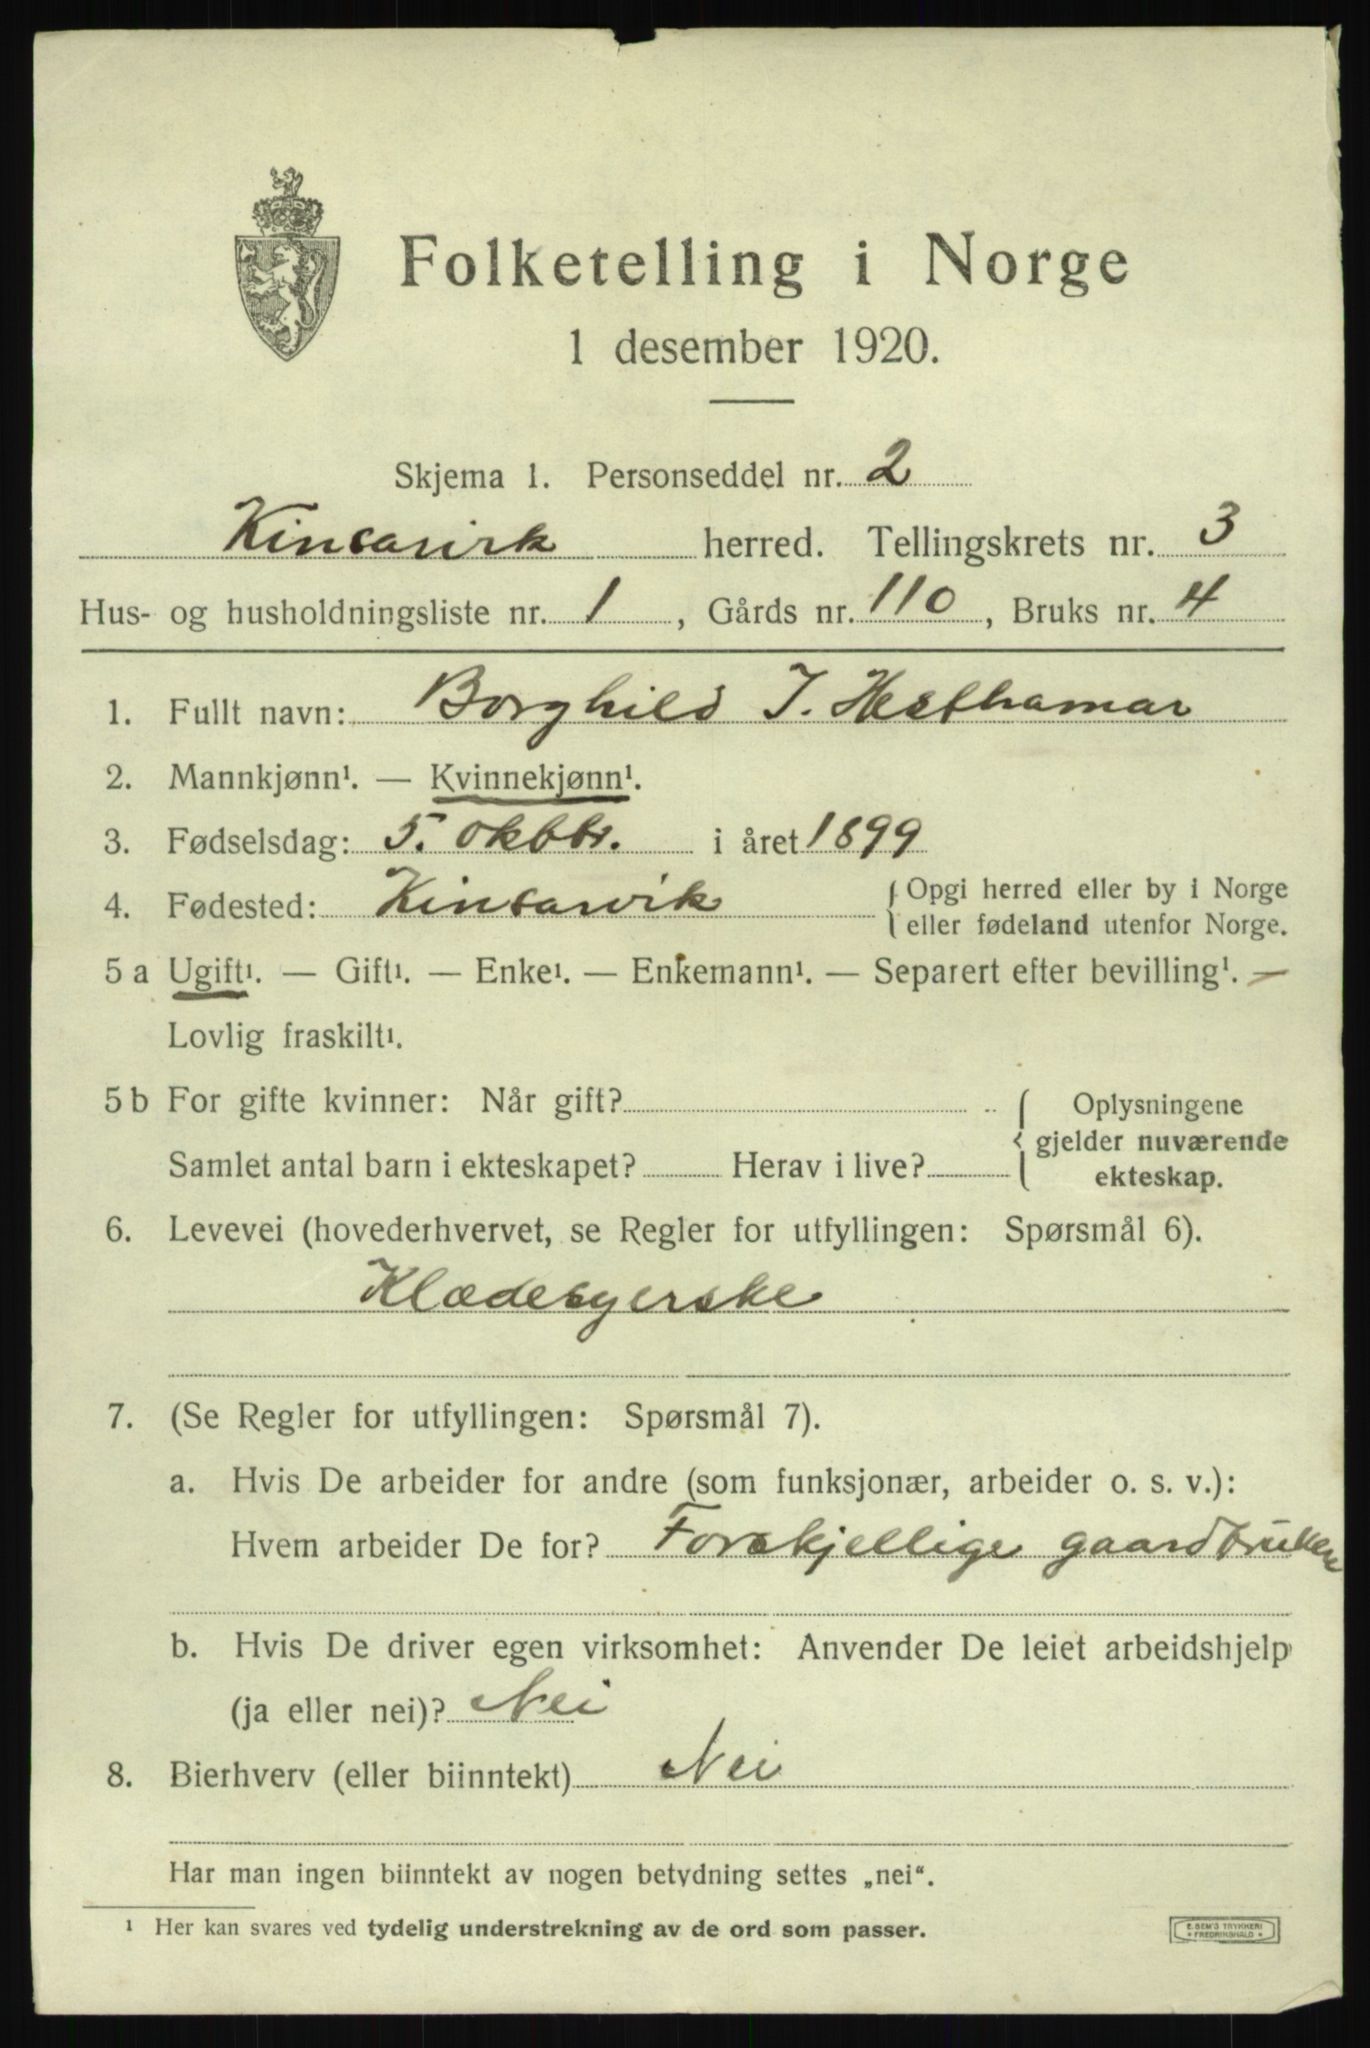 Folketelling i Norge
1 desember 1920.
Skjema 1. Personseddel nr. 2
Kinsarvik herred. Tellingskrets nr. 3
Hus- og husholdningsliste nr. 1, Gårds nr. 110, Bruks nr. 4
1. Fullt navn: Borghild J. Hesthamar
2. Mannkjønn¹. — Kvinnekjønn¹.
3. Fødselsdag: 5. oktbr. i året 1899
4. Fødested: Kinsarvik { Opgi herred eller by i Norge
eller fødeland utenfor Norge.
5 a Ugift¹. — Gift¹. — Enke¹. — Enkemann¹. — Separert efter bevilling¹. —
Lovlig fraskilt¹.
5 b For gifte kvinner: Når gift?
Samlet antal barn i ekteskapet? Herav i live?
Oplysningene
gjelder nuværende
ekteskap.
6. Levevei (hovederhvervet, se Regler for utfyllingen: Spørsmål 6).
Klædesyerske
7. (Se Regler for utfyllingen: Spørsmål 7).
a. Hvis De arbeider for andre (som funksjonær, arbeider o. s. v.):
Hvem arbeider De for? Forskjellige gaardbruker
b. Hvis De driver egen virksomhet: Anvender De leiet arbeidshjelp
(ja eller nei)? Nei
8. Bierhverv (eller biinntekt) Nei
Har man ingen biinntekt av nogen betydning settes „nei“.
¹ Her kan svares ved tydelig understrekning av de ord som passer.
E. SEM'S TRYKKERI
FREDRIKSHALD